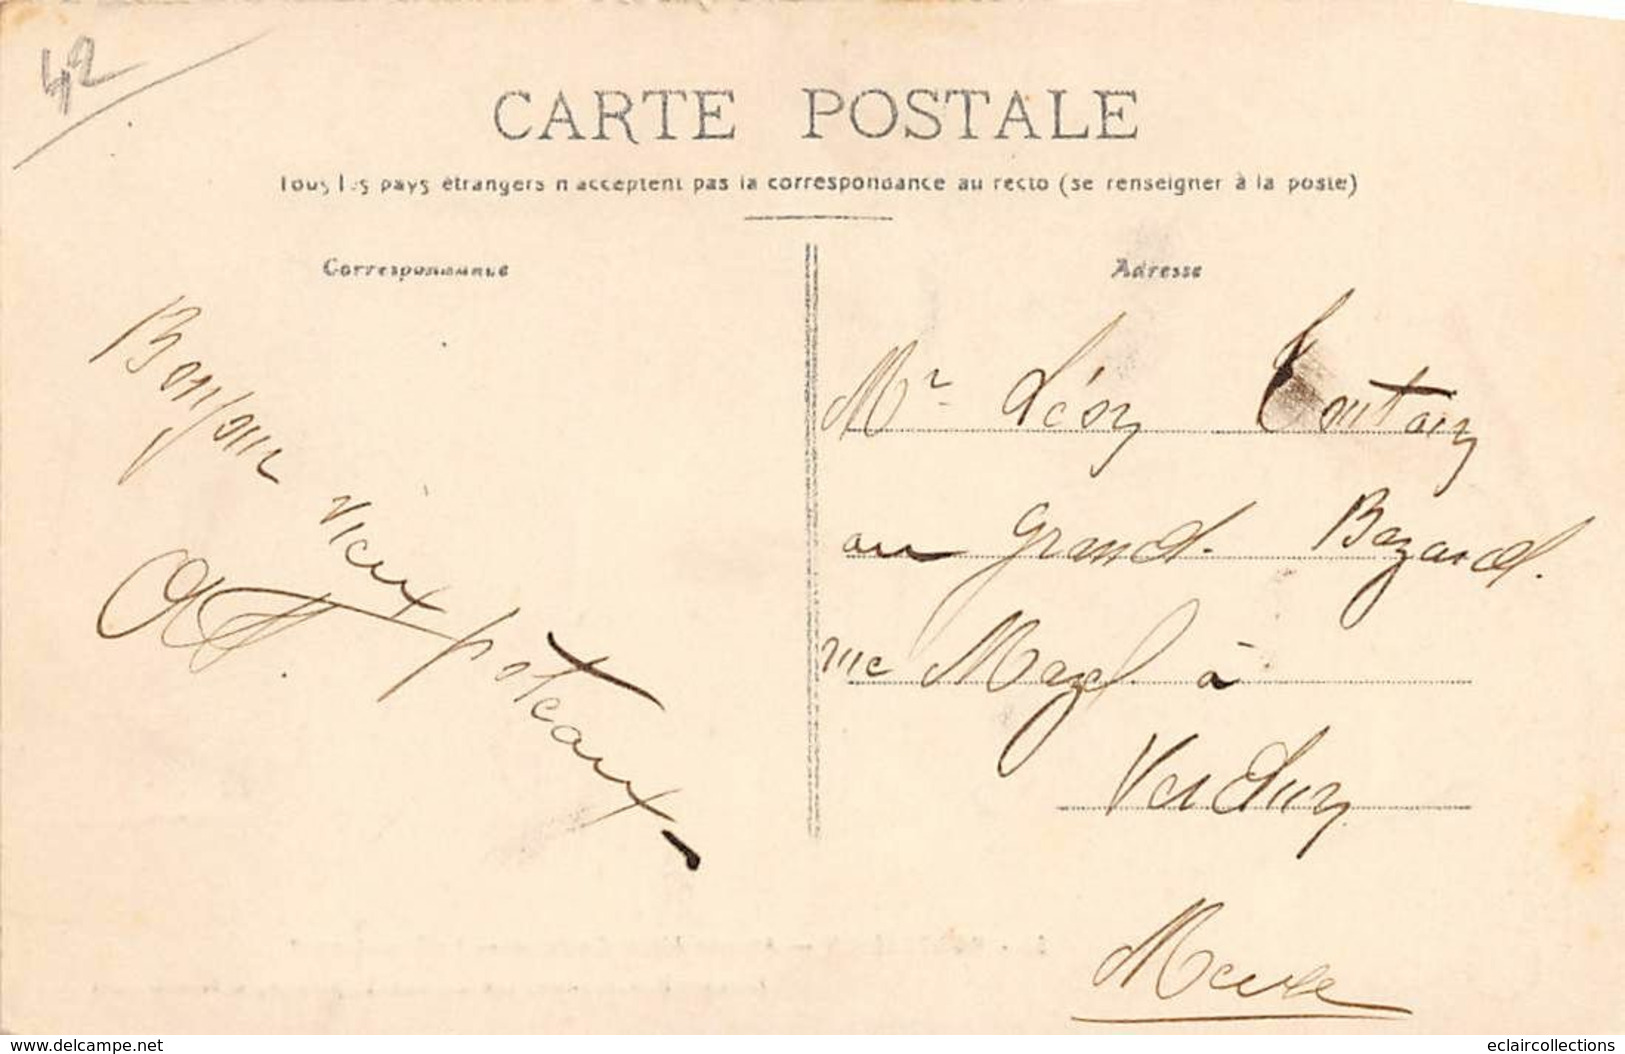 42
CARTE POSTALE
Tous les pays étrangers n'acceptent pas la correspondance au recto (se renseigner à la poste)
Correspondance
Adresse
Bonjour vieux poteaux.
Mr Léon
au grand Bazard.
rue Mazel à
Verdun
Meuse
www.delcampe.net
eclaircollections